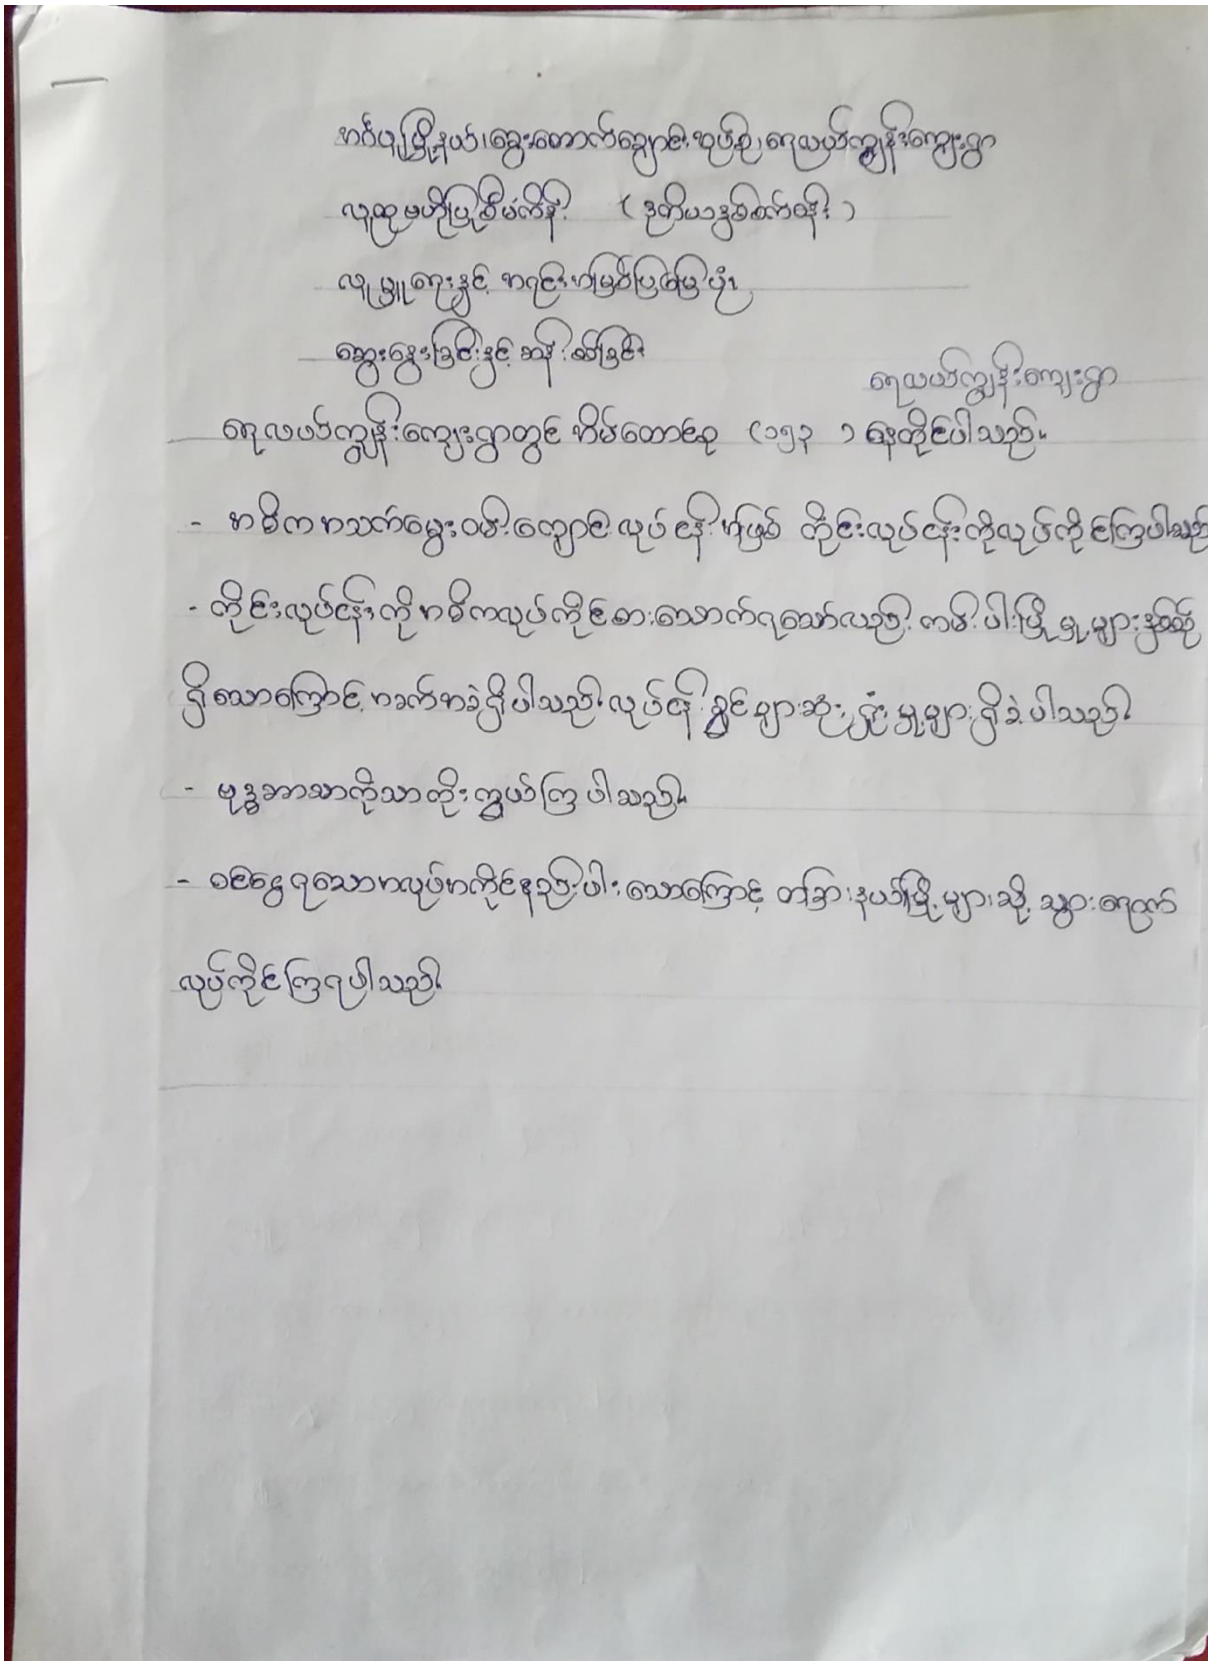 အင်္ဂပူမြို့နယ်၊ ခွေးတောက်ချောင်းအုပ်စု၊ ရေလယ်ကျွန်းကျေးရွာ
လူထုဗဟိုပြုစီမံကိန်း (ဒုတိယနှစ်စက်ဝန်း)
လူမှုရေးနှင့် အရင်းအမြစ်ပြမြေပုံ
ဆွေးနွေးခြင်းနှင့် ဆန်းစစ်ခြင်း
ရေလယ်ကျွန်းကျေးရွာ
ရေလယ်ကျွန်းကျေးရွာတွင် အိမ်ထောင်စု (၁၅၃) နေထိုင်ပါသည်။
- အဓိကအသက်မွေးဝမ်းကျောင်းလုပ်ငန်းအဖြစ် ကိုင်းလုပ်ငန်းကိုလုပ်ကိုင်ကြပါသည်
- ကိုင်းလုပ်ငန်းကိုအဓိကလုပ်ကိုင်စားသောက်ရသော်လည်း ကမ်းပါးပြိုမှုများနှစ်စဉ်
ရှိသောကြောင့် အခက်အခဲရှိပါသည်။ လုပ်ငန်းခွင်များဆုံးရှုံးမှုများရှိခဲ့ပါသည်။
- ဗုဒ္ဓဘာသာကိုသာကိုးကွယ်ကြပါသည်။
- ဝင်ငွေရသောအလုပ်အကိုင်နည်းပါးသောကြောင့် တခြားနယ်မြို့များသို့ သွားရောက်
လုပ်ကိုင်ကြရပါသည်။